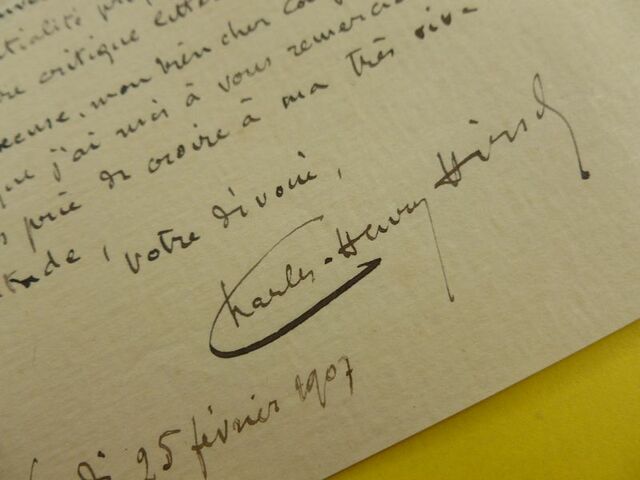 critique
mon bien cher
que j'ai mis à vous remercier
prié de croire à ma très vive
votre dévoué,
Charles-Henry Hirsch
25 février 1907